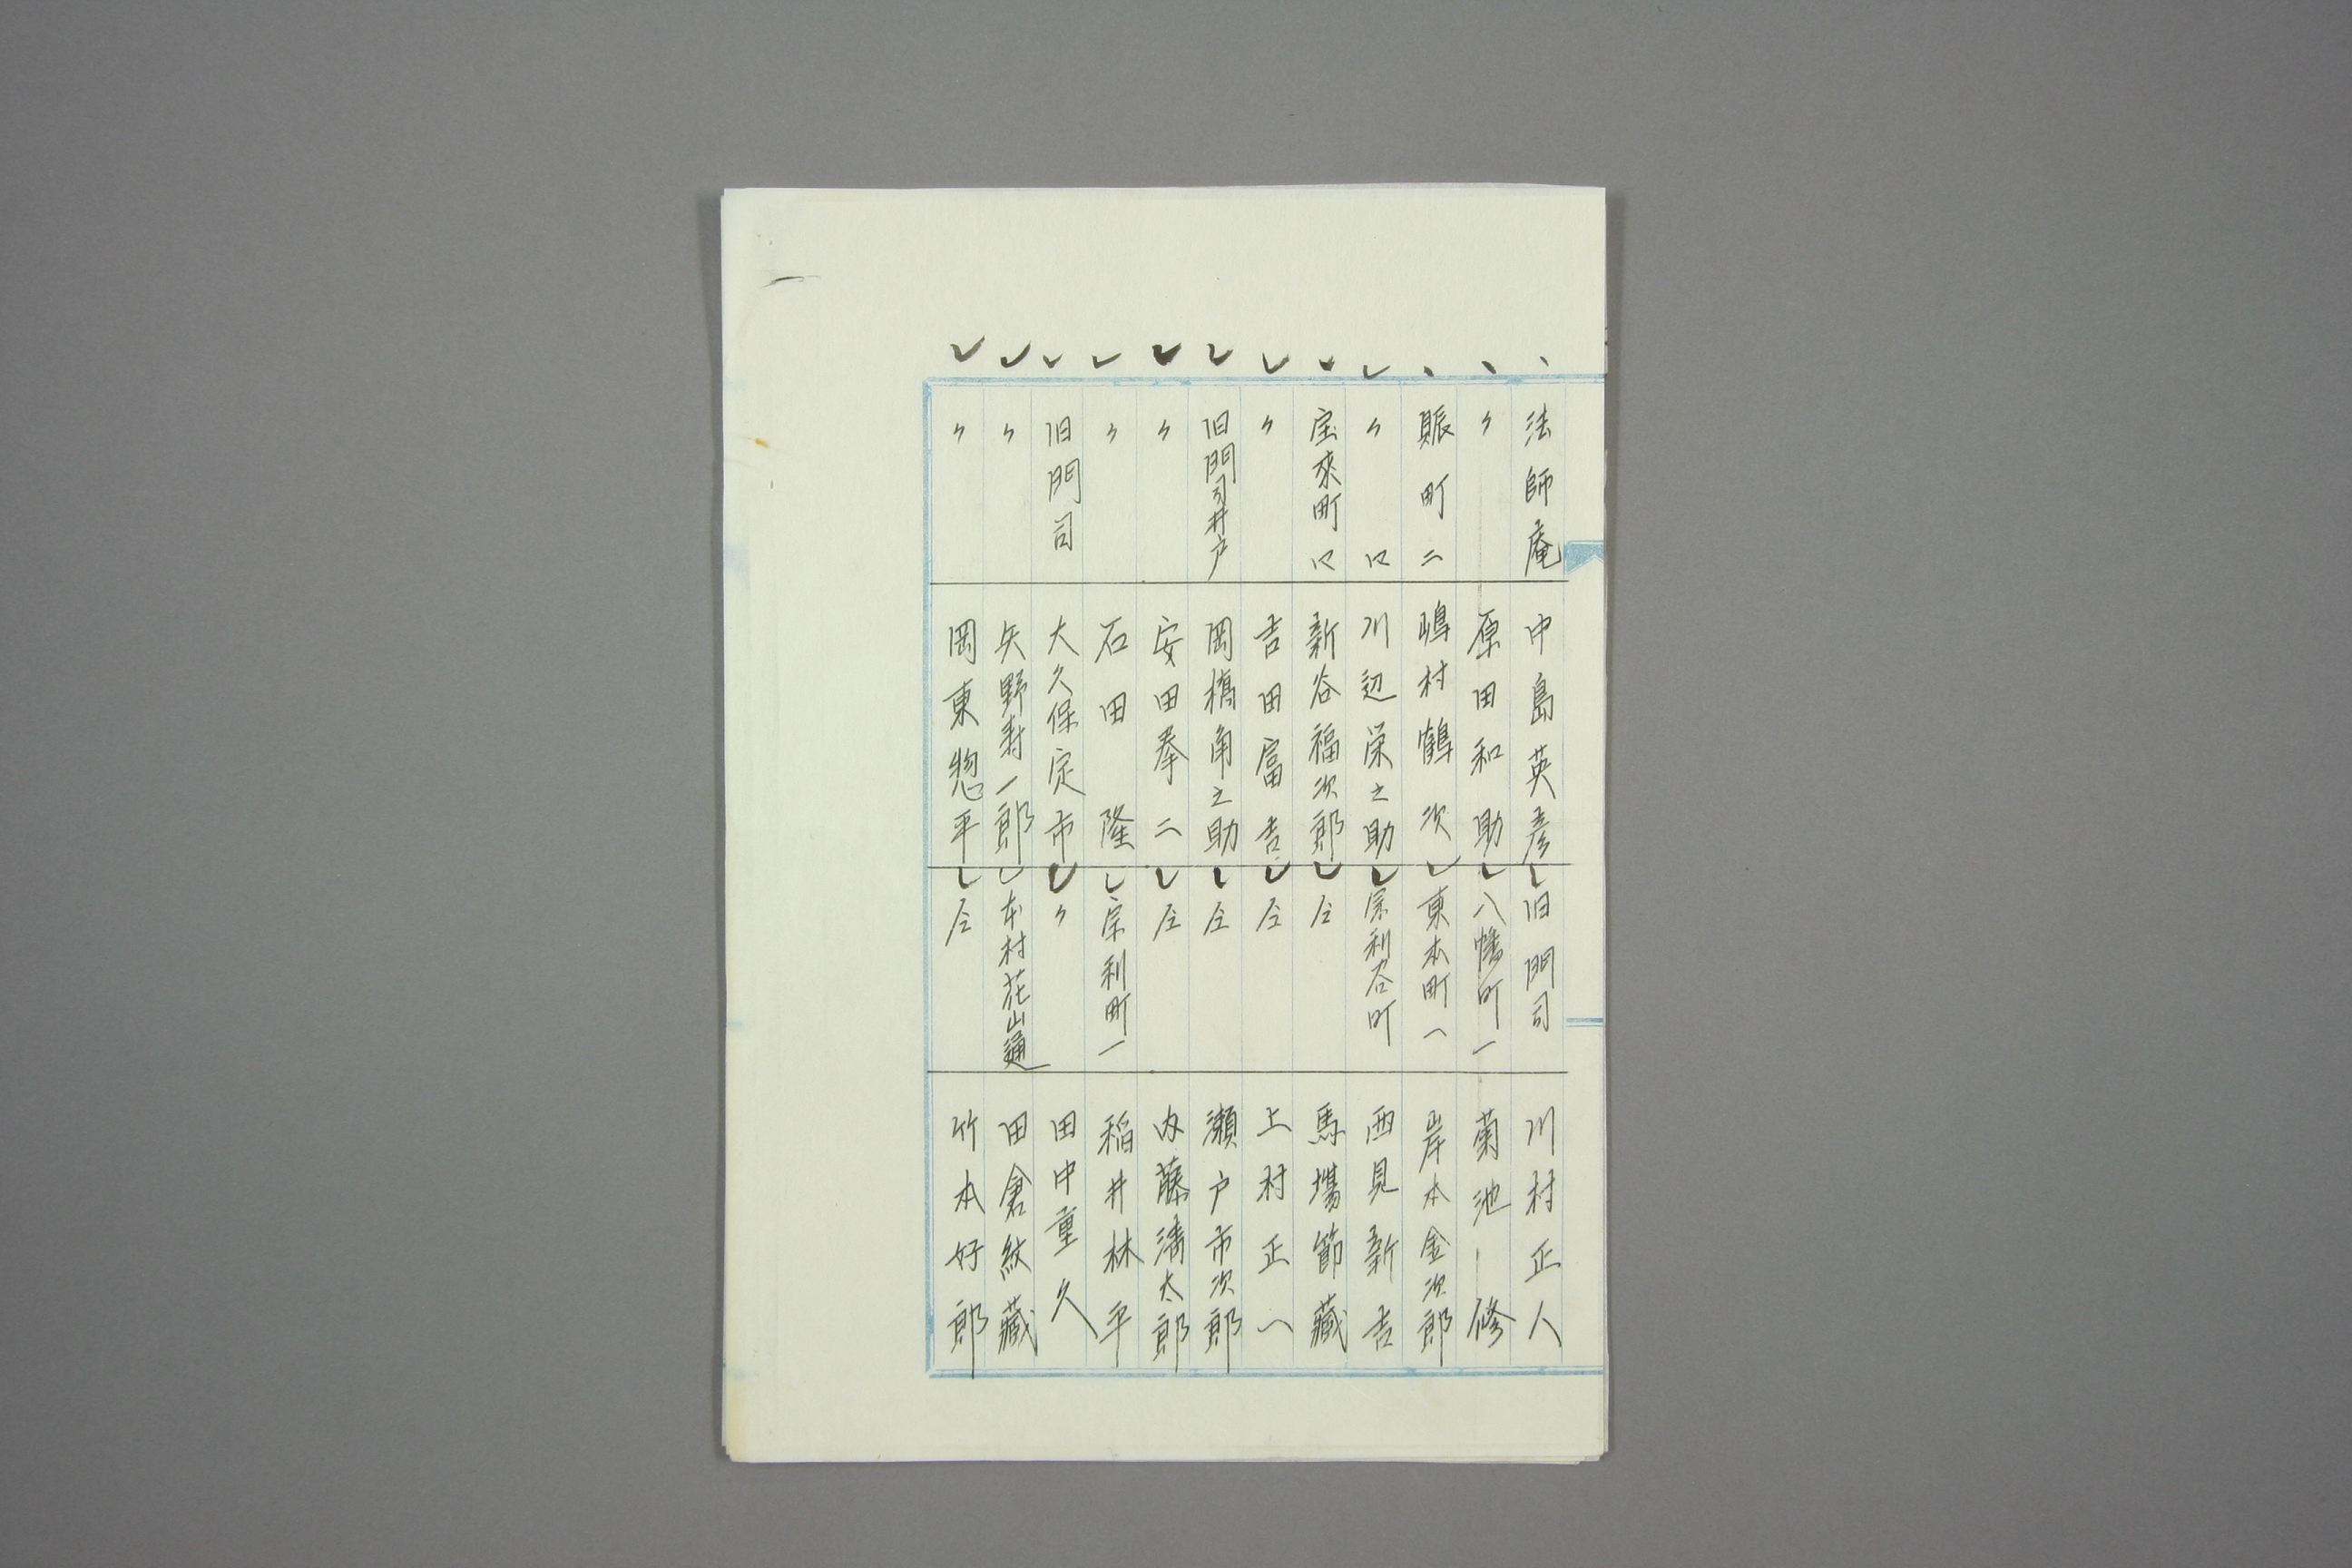 法師庵 中島英彦 旧門司 川村正人
〃 原田和助 八幡町一 菊池 修
賑町二 嶋村鶴次 東本町一 岸本金次郎
〃 ロ 川辺栄之助 宗利谷町 西見新吉
宝来町ロ 新谷福次郎 仝 馬場節藏
〃 吉田富吉 仝 上村正一
旧門司井戸 岡橋角之助 仝 瀬戸市次郎
〃 安田奉二 仝 内藤清太郎
〃 石田 隆 宗利町一 稲井林平
旧門司 大久保定市 〃 田中重久
〃 矢野寿一郎 本村花山通 田倉紋藏
〃 岡東惣平 仝 竹本好郎